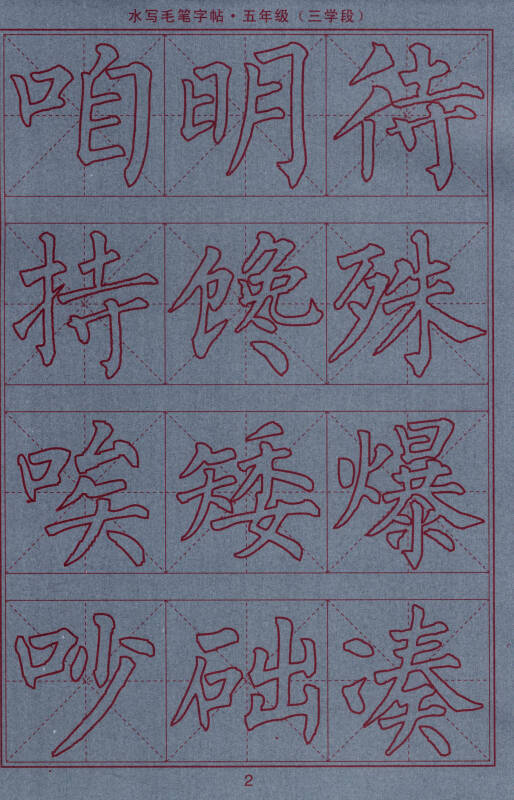 水写毛笔字帖·五年级（三学段）
咱明待
持馋殊
唉矮爆
吵础凑
2